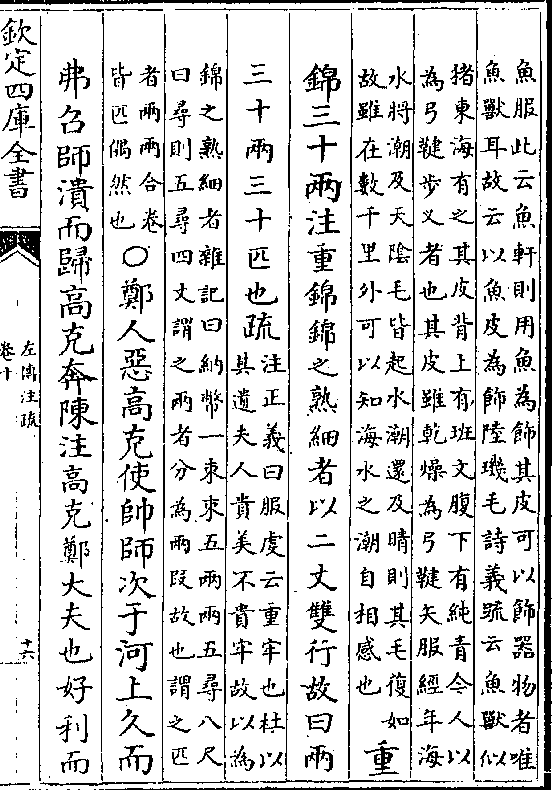 魚服此云魚軒則用魚為飾其皮可以飾器物者唯
魚獸耳故云以魚皮為飾陸璣毛詩義疏云魚獸似
猪東海有之其皮背上有班文腹下有純青今人以
為弓鞬步乂者也其皮雖乾燥為弓鞬矢服經年海
水將潮及天陰毛皆起水潮還及晴則其毛復如
故雖在數千里外可以知海水之潮自相感也
重
錦三十兩注重錦錦之熟細者以二丈雙行故曰兩
三十兩三十匹也疏
注正義曰服虔云重牢也杜以
其遺夫人貴美不貴牢故以為
錦之熟細者雜記曰納幣一束束五兩兩五尋八尺
曰尋則五尋四丈謂之兩者分為兩叚故也謂之匹
者兩兩合卷
皆匹偶然也
○鄭人惡高克使帥師次于河上久而
弗召師潰而歸高克奔陳注高克鄭大夫也好利而
欽定四庫全書
左傳注疏
卷十
十六